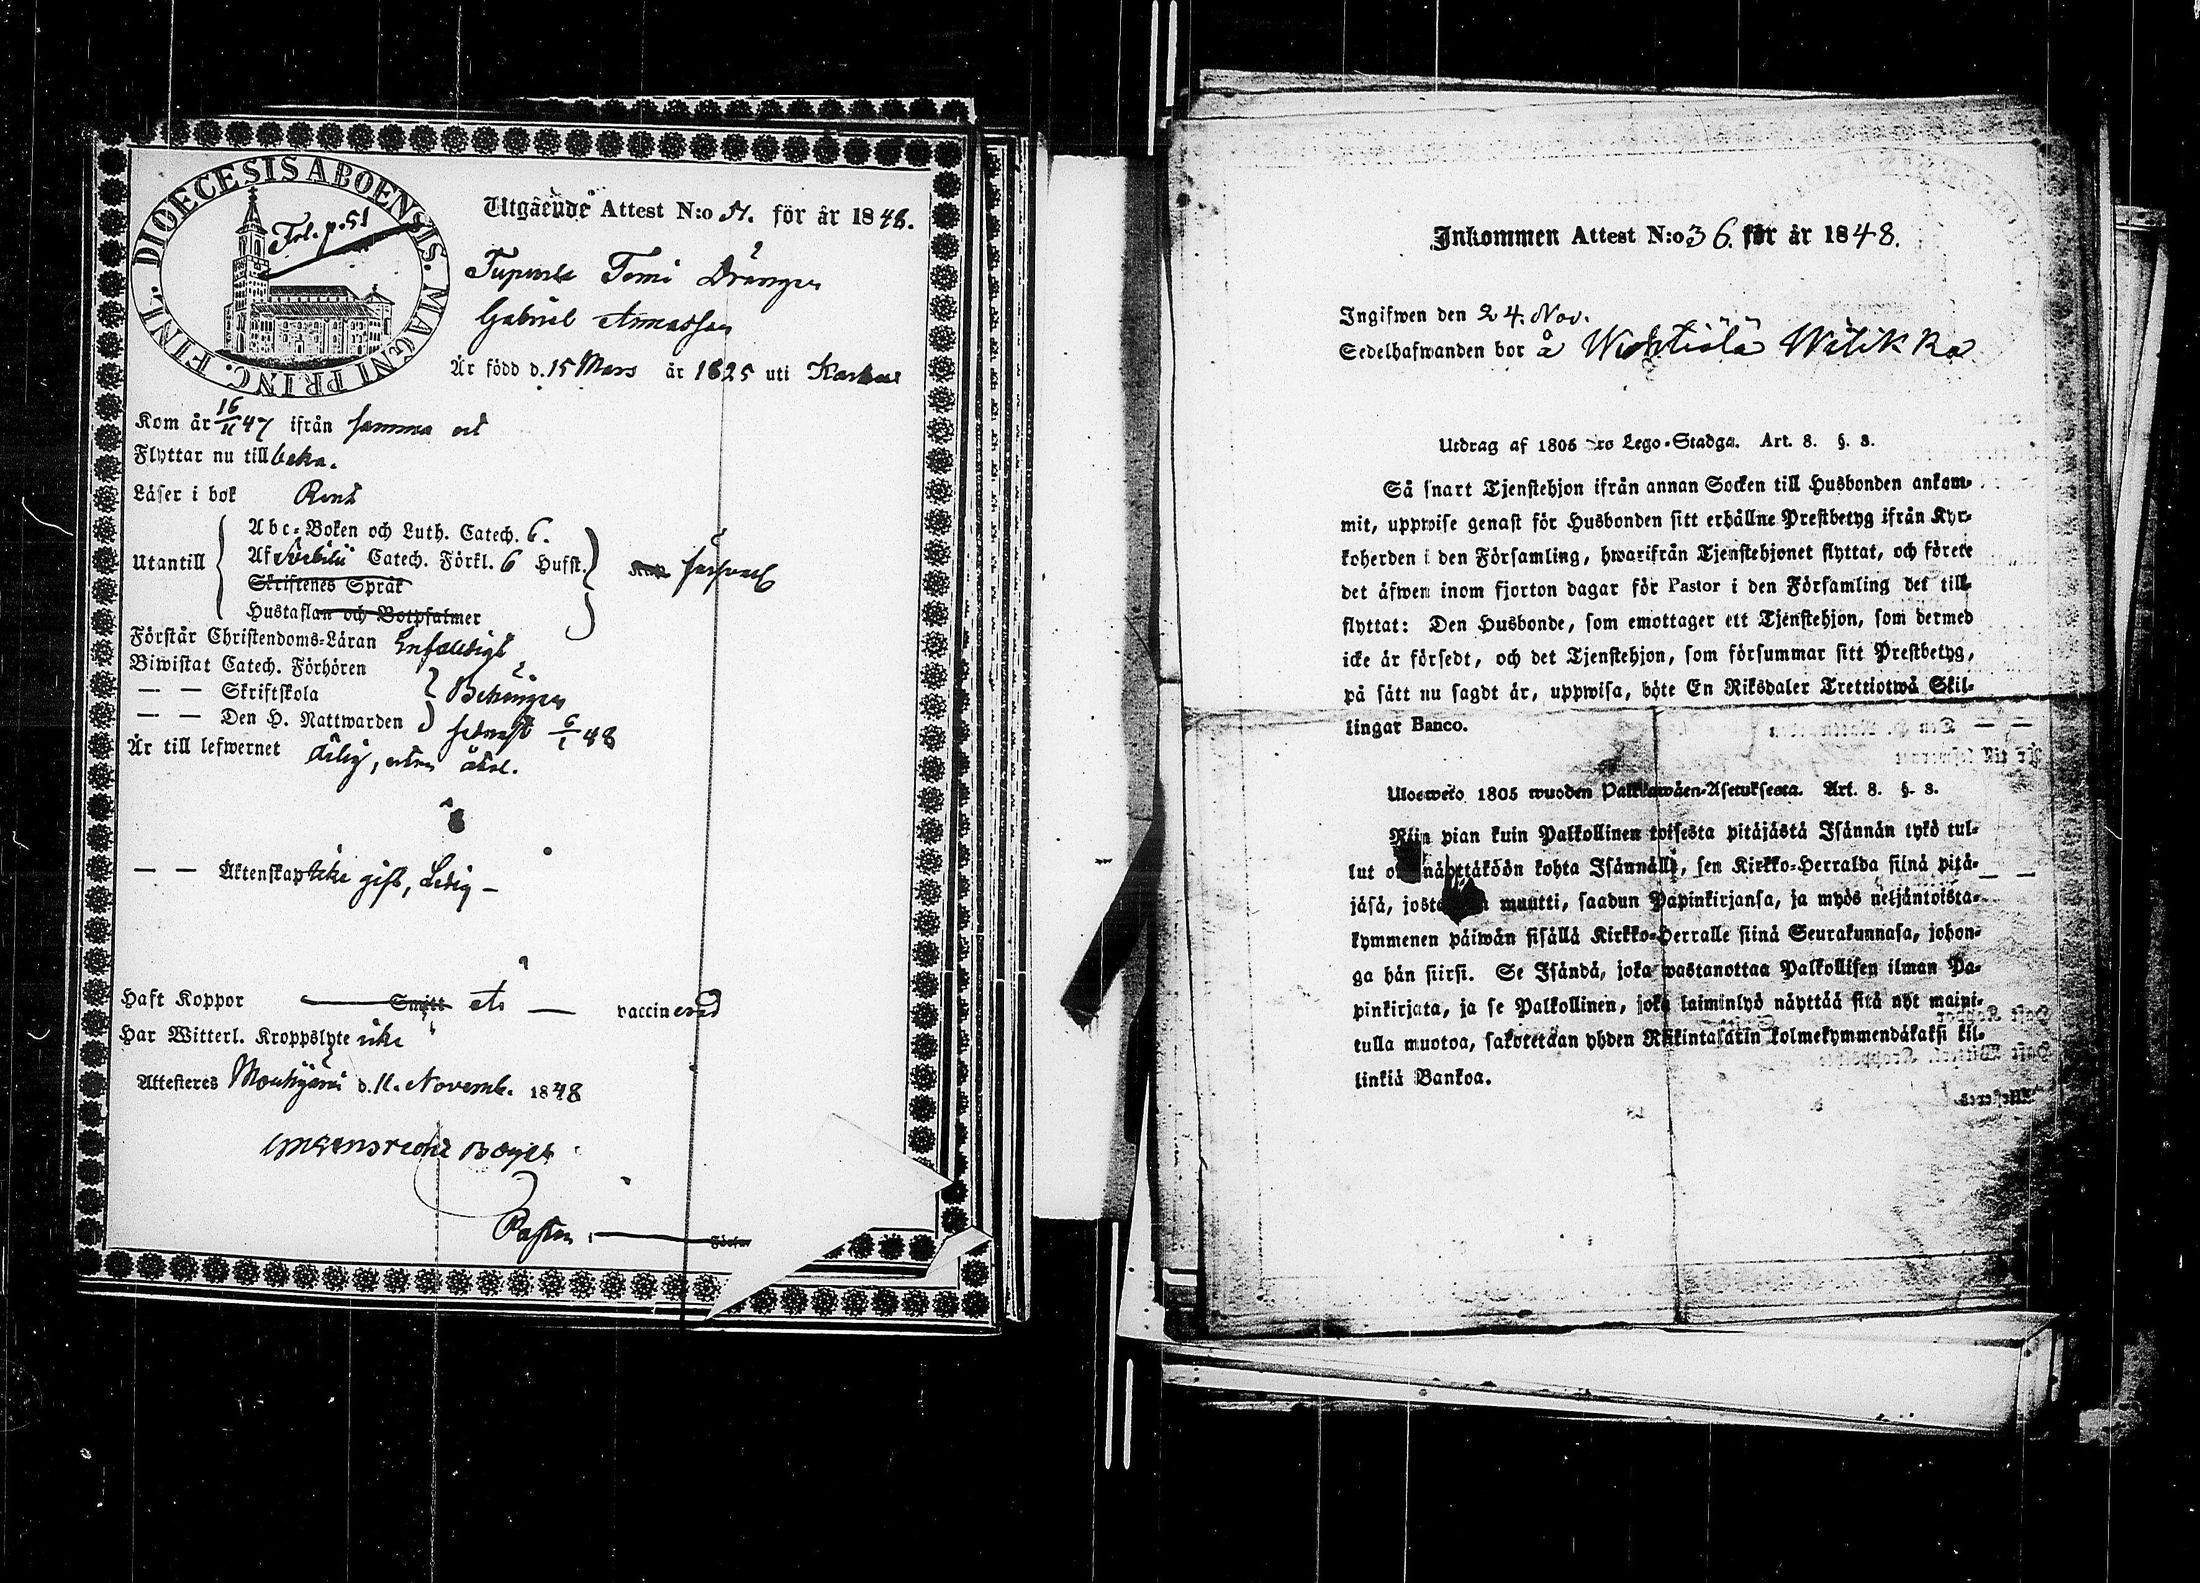 DIOECESIS ABOENSIS. MAGNI PRINC. FINL.
Fol. p. 51
Utgående Attest N:o 51. för år 1848.
Tomi Drängen
Gabriel
Är född d. 15 Mars år 1825 uti
Kom år 16/11 47 ifrån samma ort
Flyttar nu till baka.
Läser i bok Rent
Utantill
Abc-Boken och Luth. Catech. 6.
Af Svebilii Catech. Förkl. 6 Hufst.
Skriftenes Språk
Hustaflan och Botpsalmer
försvarl
Förstår Christendoms-Läran Enfaldigt
Biwistat Catech. Förhören
— — Skriftskola
— — Den H. Nattwarden
Behörigen
senast 6/1 48
Är till lefwernet ärlig, utan
— — Äktenskap icke gift, Ledig —
Haft Koppor — Smitt — vaccinerad
Har Witterl. Kroppslyte icke
Attesteres Mouhijärvi d. 11. Novemb. 1848
Pastor.
Inkommen Attest N:o 36. för år 1848.
Ingifwen den 24. Nov.
Sedelhafwanden bor å Wichtiälä Witikka
Utdrag af 1805 års Lego-Stadga. Art. 8. §. 8.
Så snart Tjenstehjon ifrån annan Socken till Husbonden ankom-
mit, uppwise genast för Husbonden sitt erhållne Prestbetyg ifrån Kyr-
koherden i den Församling, hwarifrån Tjenstehjonet flyttat, och förete
det äfwen inom fjorton dagar för Pastor i den Församling det till-
flyttat: Den Husbonde, som emottager ett Tjenstehjon, som dermed
icke är försedt, och det Tjenstehjon, som försummar sitt Prestbetyg,
på sätt nu sagdt är, uppwisa, böte En Riksdaler Trettiotwå Skil-
lingar Banco.
Ulosweto 1805 wuoden Palkkawäen-Asetuksesta. Art. 8. §. 8.
Niin pian kuin Palkollinen toisesta pitäjästä Isännän tykö tul-
lut näyttäköön kohta Isännälle, sen Kirkko-Herralda siinä pitä-
jäsä, josta muutti, saadun Papinkirjansa, ja myös neljäntoista-
kymmenen päiwän sisällä Kirkko-Herralle siinä Seurakunnasa, johon-
ga hän siirsi. Se Isändä, joka wastanottaa Palkollisen ilman Pa-
pinkirjata, ja se Palkollinen, joka laiminlyö näyttää sitä nyt maini-
tulla muotoa, sakotetaan yhden Riikintalarin kolmekymmendäkaksi kil-
linkiä Bankoa.